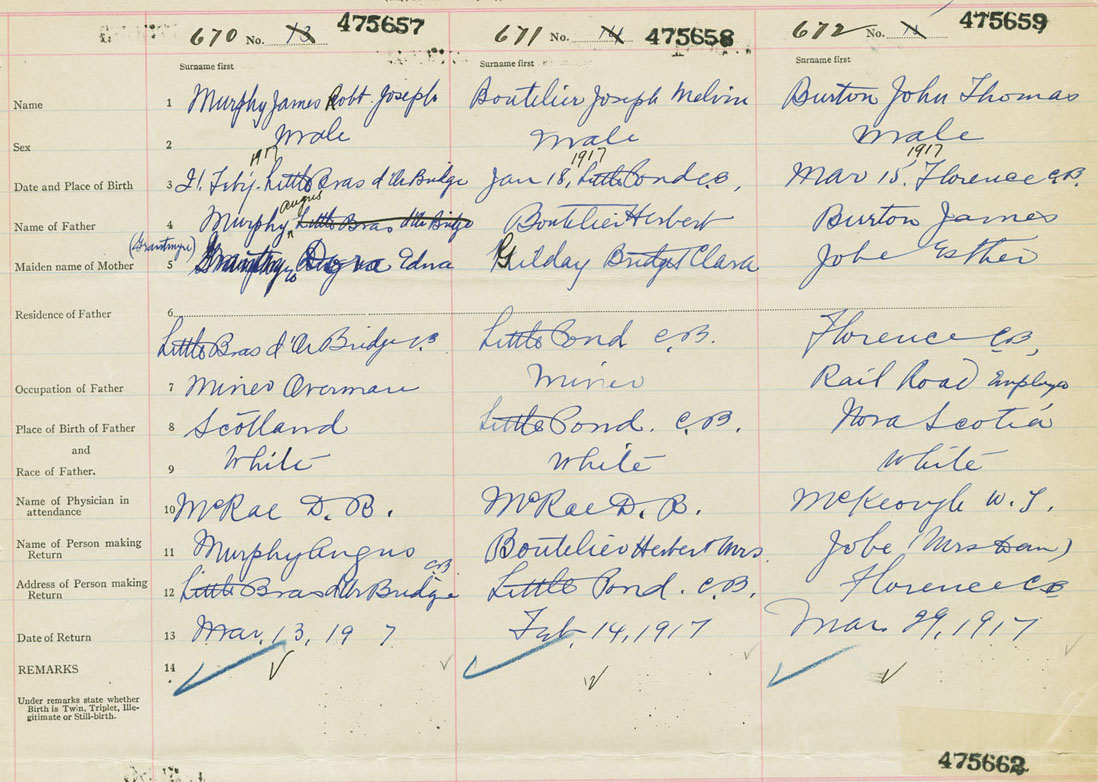 670 No. 13 475657 671 No. 14 475658 672 No. 475659
Surname first Surname first Surname first
Name 1 Murphy James Robt. Joseph Boutelier Joseph Melvin Burton John Thomas
Sex 2 Male Male Male
1917 1917 1917
Date and Place of Birth 3 21. Feby. Little Bras d'Or Bridge Jan 18, Little Pond C.B, Mar 15. Florence C.B.
Angus
Name of Father 4 Murphy Little Bras d'Or Bridge Boutelier Herbert Burton James
(Grantmyre)
Maiden name of Mother 5 Edna Gilday Bridget Clara Jobe Esther
Residence of Father 6
Little Bras d'Or Bridge C.B Little Pond C.B. Florence C.B,
Occupation of Father 7 Miner Overman Miner Rail Road Employe
Place of Birth of Father 8 Scotland Little Pond. C.B. Nova Scotia
and
Race of Father. 9 White White White
Name of Physician in
attendance 10 McRae D. B. McRae D. B. McKeough W. J.
Name of Person making
Return 11 Murphy Angus Boutelier Herbert Mrs. Jobe (Mrs Dan)
C.B
Address of Person making
Return 12 Little Bras d'Or Bridge Little Pond. C.B. Florence CB
Date of Return 13 Mar. 13, 19 7 Feb. 14, 1917 Mar 29, 1917
REMARKS 14
Under remarks state whether
Birth is Twin, Triplet, Ille-
gitimate or Still-birth.
475662